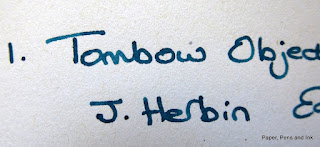 1. Tombow Objec
J. Herbin
Paper, Pens and Ink